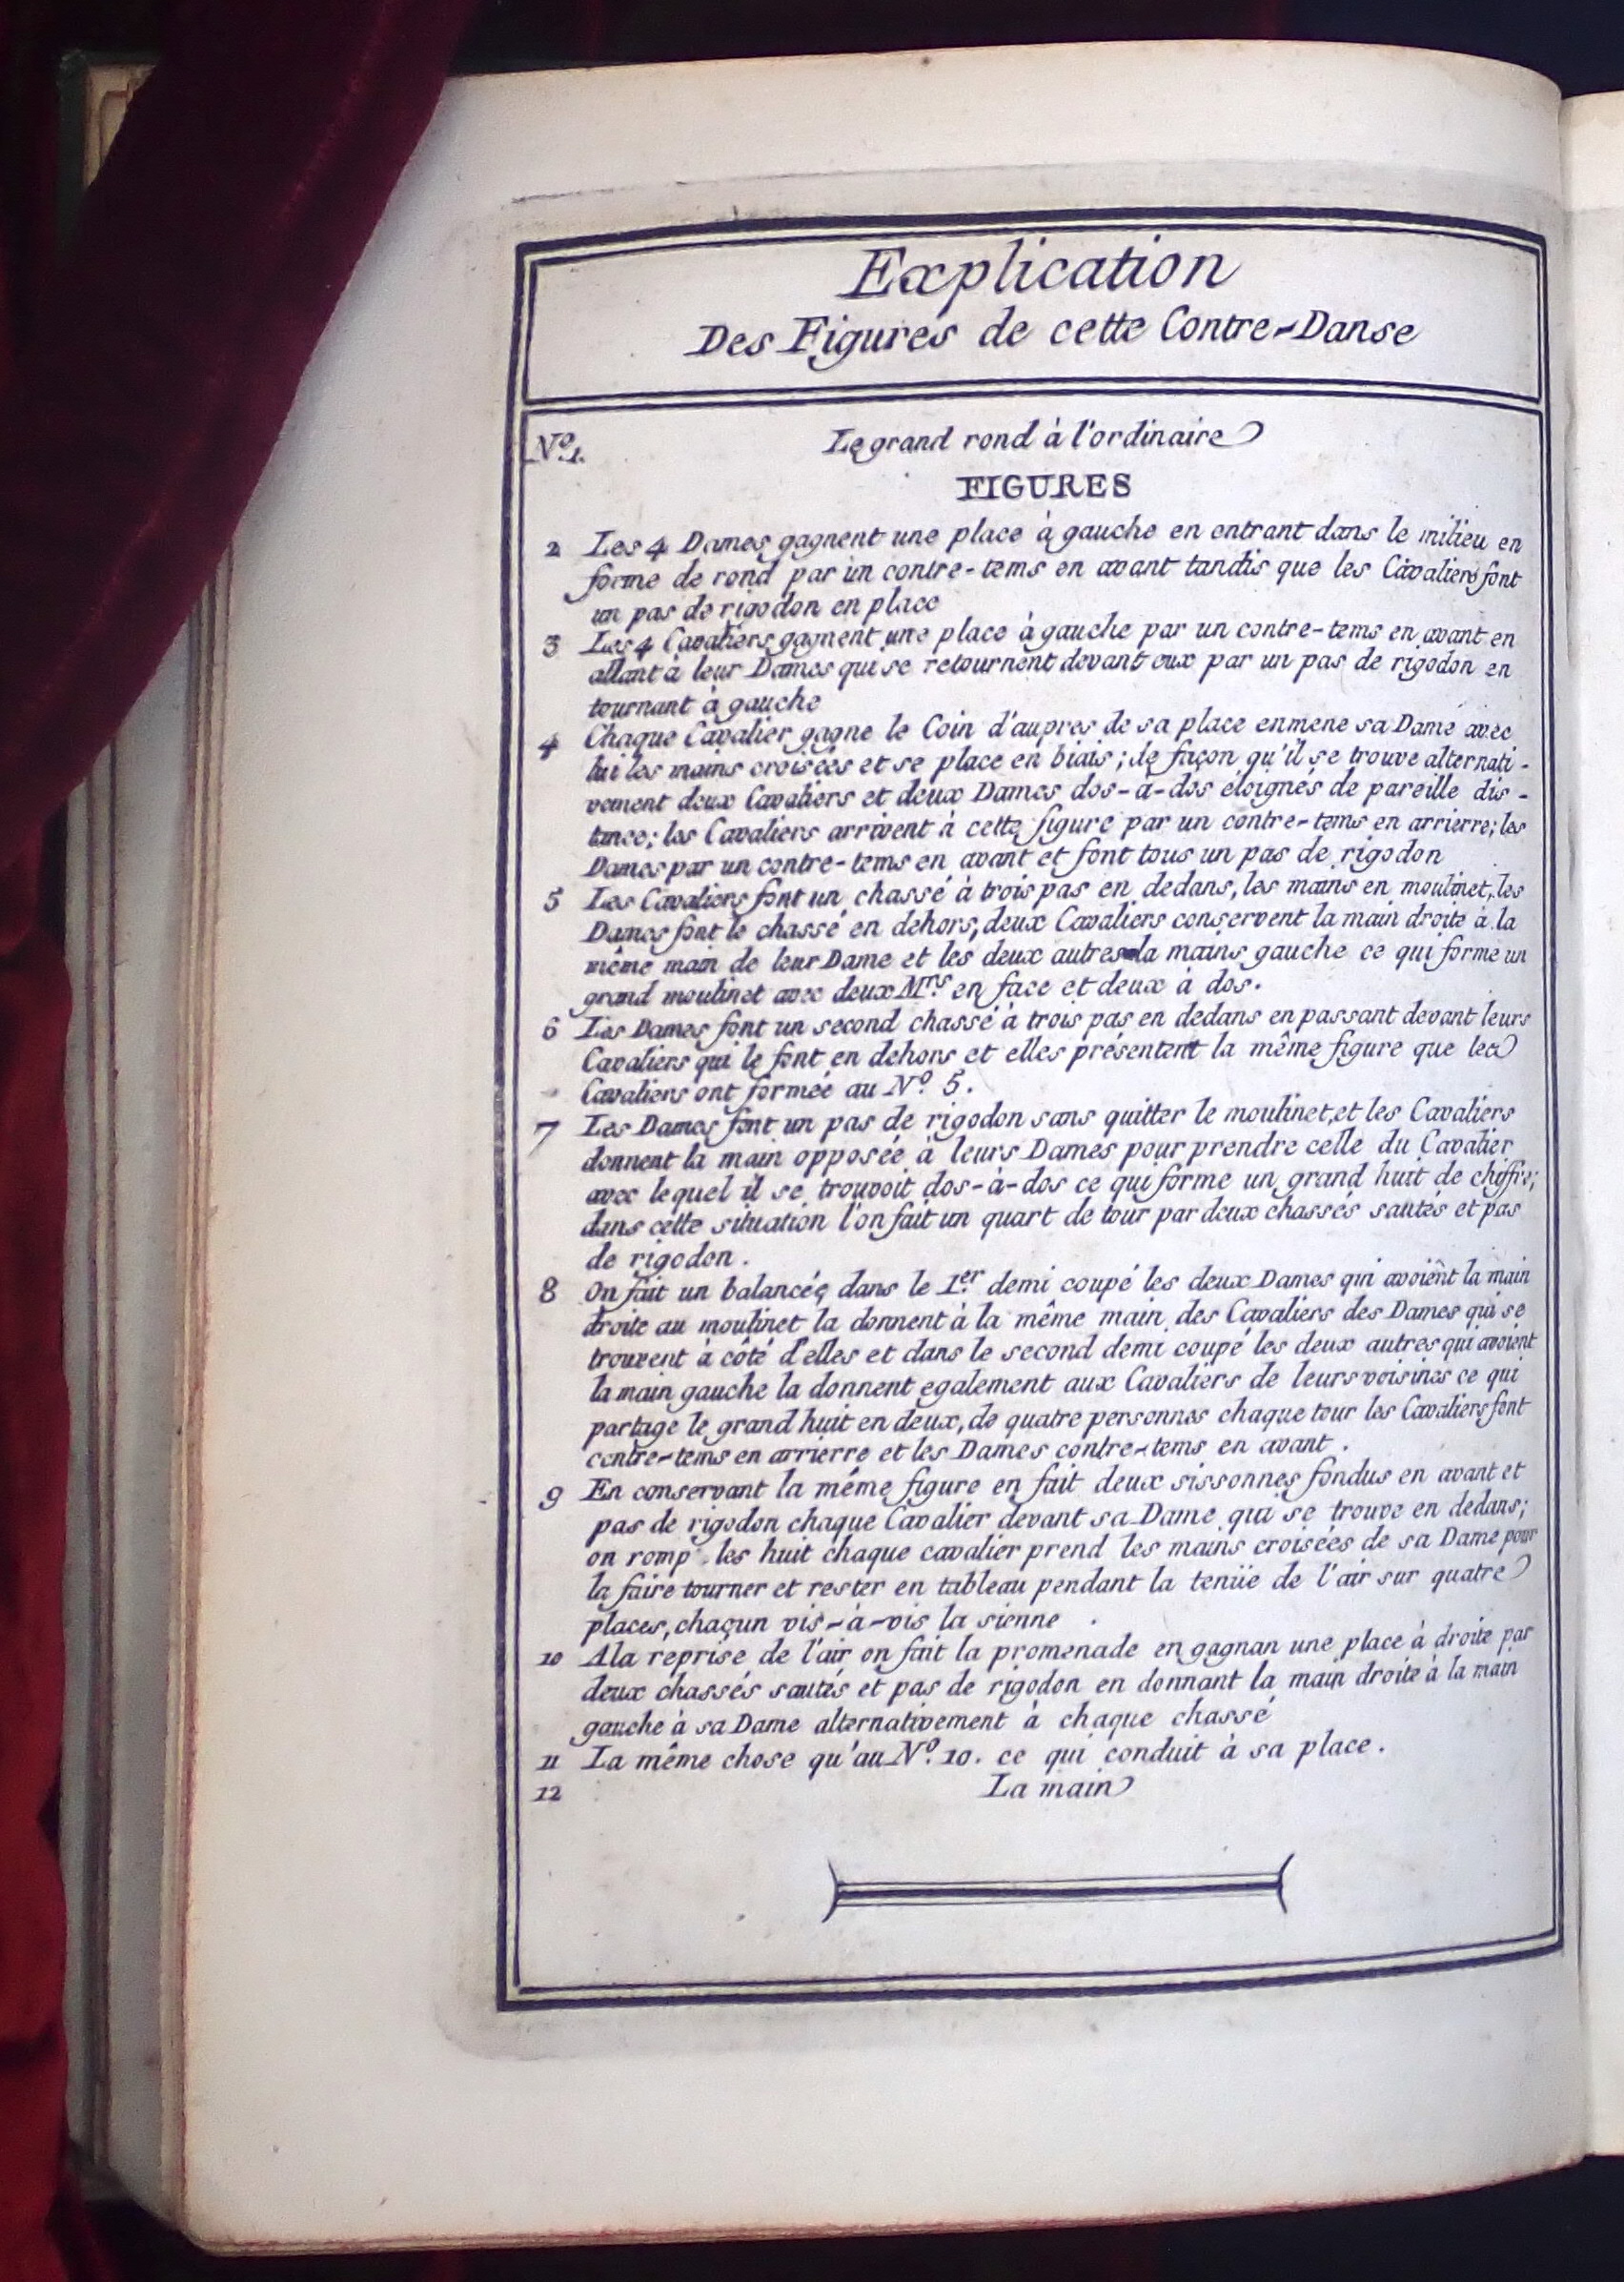 Explication
Des Figures de cette Contre-Danse
N.º 1. Le grand rond à l'ordinaire
FIGURES
2 Les 4 Dames gagnent une place à gauche en entrant dans le milieu en
forme de rond par un contre-tems en avant tandis que les Cavaliers font
un pas de rigodon en place
3 Les 4 Cavaliers gagnent une place à gauche par un contre-tems en avant en
allant à leur Dames qui se retournent devant eux par un pas de rigodon en
tournant à gauche
4 Chaque Cavalier gagne le Coin d'aupres de sa place enmene sa Dame avec
lui les mains croisées et se place en biais; de façon qu'il se trouve alternati-
vement deux Cavaliers et deux Dames dos-à-dos éloignés de pareille dis-
tance; les Cavaliers arrivent à cette figure par un contre-tems en arrierre; les
Dames par un contre-tems en avant et font tous un pas de rigodon
5 Les Cavaliers font un chassé à trois pas en dedans, les mains en moulinet, les
Dames font le chassé en dehors; deux Cavaliers conservent la main droite à la
même main de leur Dame et les deux autres la mains gauche ce qui forme un
grand moulinet avec deux M.rs en face et deux à dos.
6 Les Dames font un second chassé à trois pas en dedans en passant devant leurs
Cavaliers qui le font en dehors et elles présentent la même figure que les
Cavaliers ont formée au N.º 5.
7 Les Dames font un pas de rigodon sans quitter le moulinet, et les Cavaliers
donnent la main opposée à leurs Dames pour prendre celle du Cavalier
avec lequel il se trouvoit dos-à-dos ce qui forme un grand huit de chiffre;
dans cette situation l'on fait un quart de tour par deux chassés sautés et pas
de rigodon.
8 On fait un balancée dans le 1.er demi coupé les deux Dames qui avoient la main
droite au moulinet la donnent à la même main des Cavaliers des Dames qui se
trouvent à côté d'elles et dans le second demi coupé les deux autres qui avoient
la main gauche la donnent egalement aux Cavaliers de leurs voisines ce qui
partage le grand huit en deux, de quatre personnes chaque tour les Cavaliers font
contre-tems en arrierre et les Dames contre-tems en avant.
9 En conservant la même figure en fait deux sissonnes fondus en avant et
pas de rigodon chaque Cavalier devant sa Dame qui se trouve en dedans;
on romp les huit chaque cavalier prend les mains croisées de sa Dame pour
la faire tourner et rester en tableau pendant la tenüe de l'air sur quatre
places, chaçun vis-à-vis la sienne.
10 A la reprise de l'air on fait la promenade en gagnan une place à droite par
deux chassés sautés et pas de rigodon en donnant la main droite à la main
gauche à sa Dame alternativement à chaque chassé
11 La même chose qu'au N.º 10. ce qui conduit à sa place.
12 La main